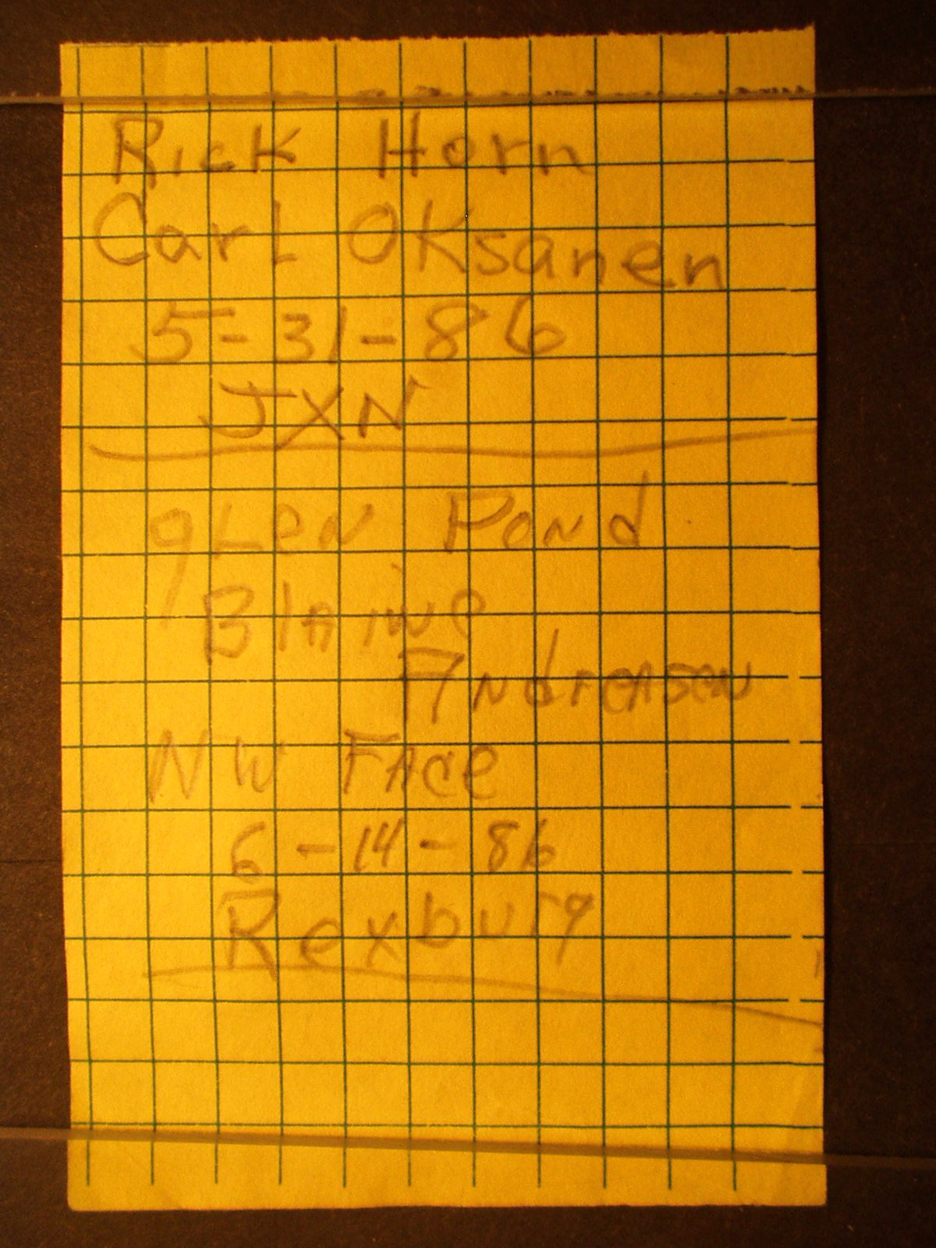 Rick Horn
Carl Oksanen
5-31-86
JXN
gLeN PoNd
BlAiNe
ANdreASeN
NW FAce
6-14-86
Rexburg